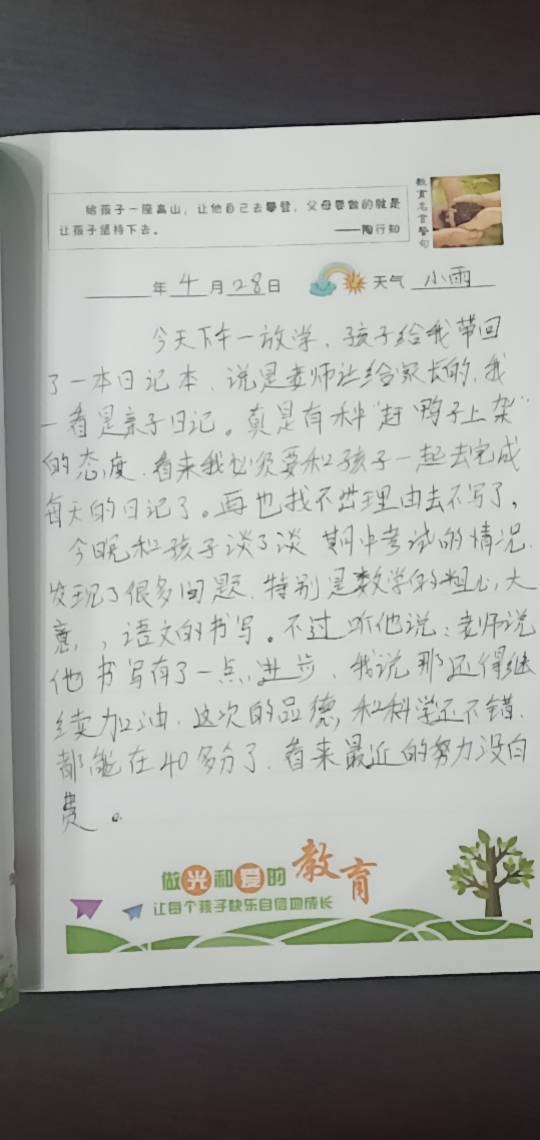 给孩子一座高山，让他自己去攀登，父母要做的就是
让孩子坚持下去。 ——陶行知
教育名言警句
年 4 月 28 日 天气 小雨
今天下午一放学，孩子给我带回
了一本日记本，说是老师让给家长的，我
一看是亲子日记。真是有种“赶鸭子上架”
的态度，看来我必须要和孩子一起去完成
每天的日记了。再也找不出理由去不写了，
今晚和孩子谈了谈 期中考试的情况，
发现了很多问题，特别是数学的粗心，大
意，，语文的书写。不过听他说：老师说
他书写有了一点进步，我说那还得继
续加油，这次的品德，和科学还不错，
都能在40多分了，看来最近的努力没白
费。
做光和爱的教育
让每个孩子快乐自信地成长